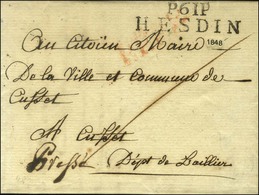 P61P
HESDIN
1848
Au Citoÿen Maire
De la Ville et Commune de
Cusset
A Cusset
Pressé Dépt de L'allier